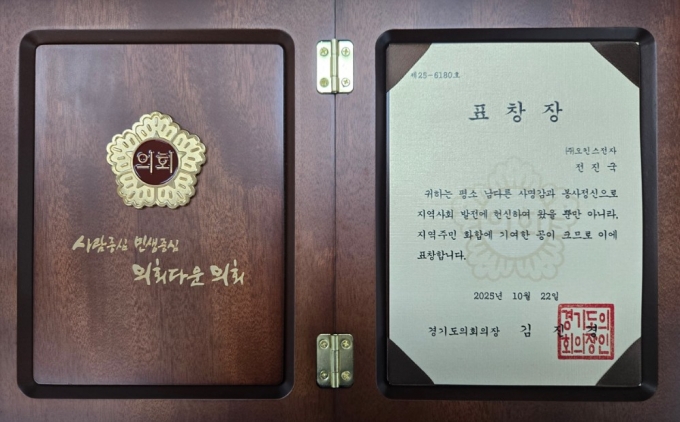 의회
사람중심 민생중심
의회다운 의회
제25-6180호
표 창 장
㈜오킨스전자
전 진 국
귀하는 평소 남다른 사명감과 봉사정신으로
지역사회 발전에 헌신하여 왔을 뿐만 아니라,
지역주민 화합에 기여한 공이 크므로 이에
표창합니다.
2025년 10월 22일
경기도의회의장 김 진 경
경기도의
회의장인